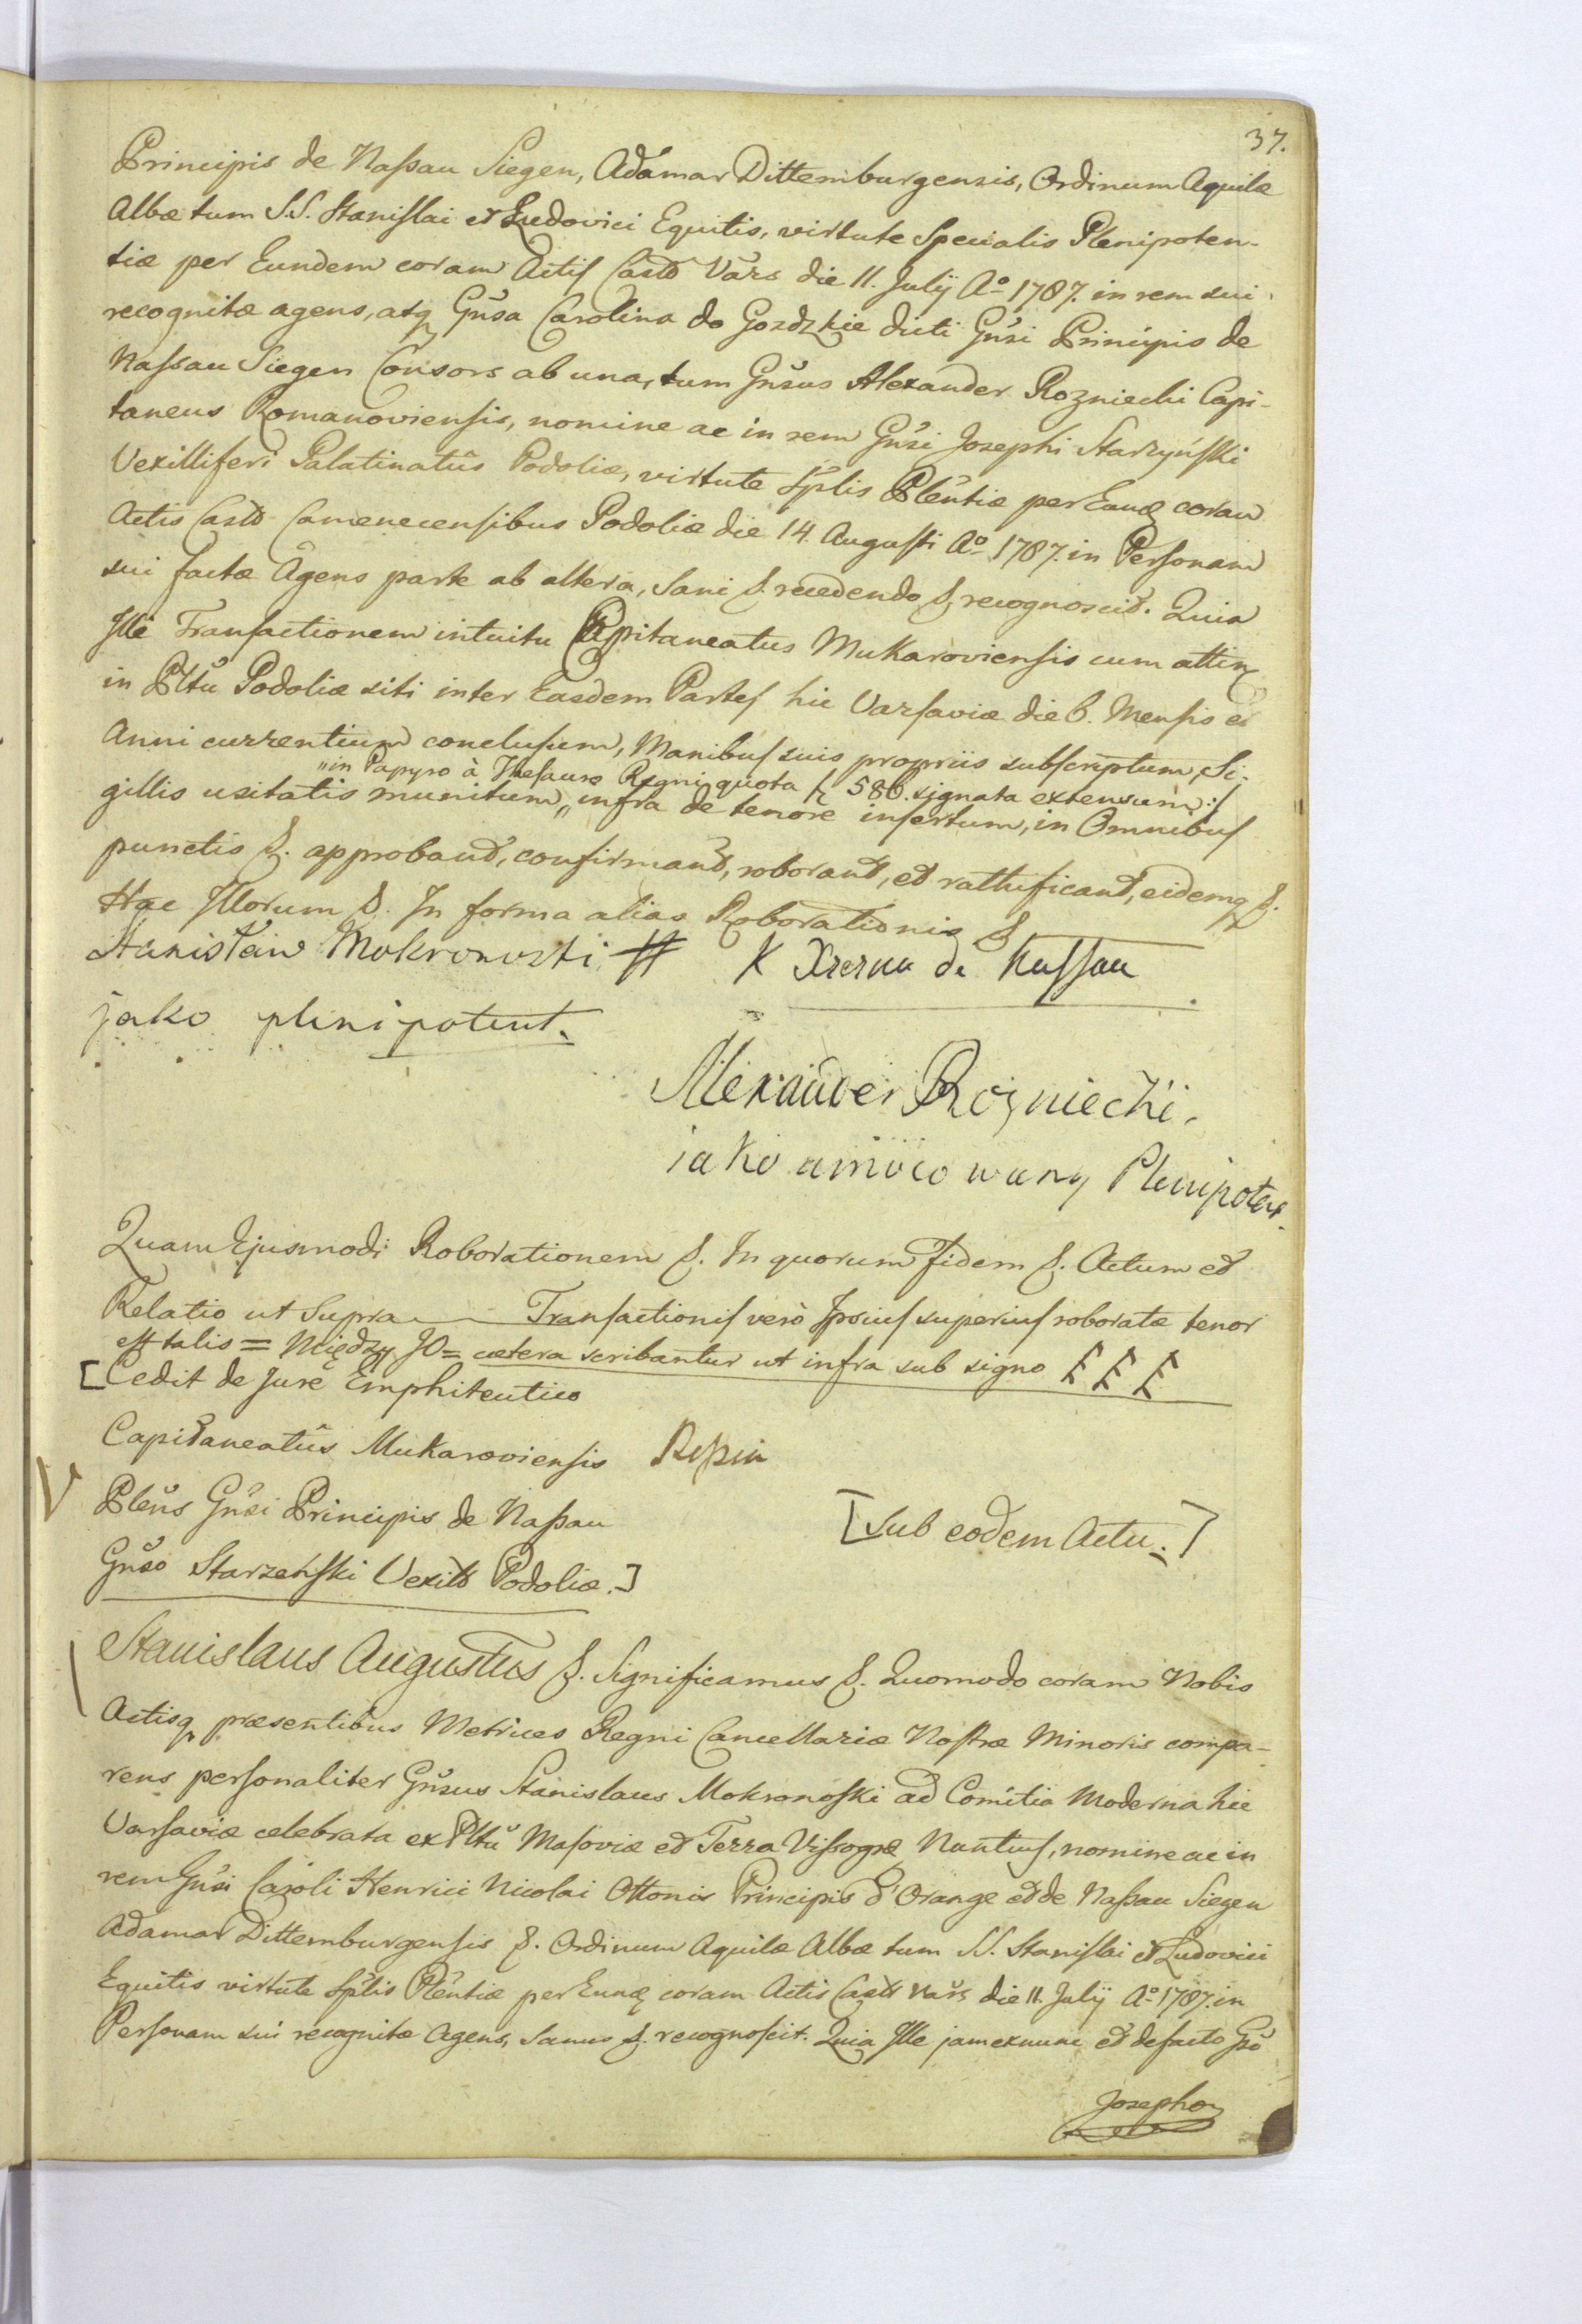 37.
Principis de Nassau Siegen, Adamar Dittemburgensis, Ordinum Aquilæ
Albæ tum S.S. Stanislai et Ludovici Equitis, virtute Specialis Plenipoten-
tiæ per Eundem coram Actis Castr Vars die 11. Julij Aº 1787. in rem sui
recognitæ agens, atq Gnsa Carolina do Gozdzkie dicti Gnsi Principis de
Nassau Siegen Consors ab una, tum Gnsus Alexander Rozniecki Capi-
taneus Romanoviensis, nomine ac in rem Gnsi Josephi Starzyński
Vexilliferi Palatinatûs Podoliæ, virtute Splis Plentiæ per Eund coram
Actis Castr Camenecensibus Podoliæ die 14. Augusti Aº 1787. in Personam
sui factæ Agens parte ab altera, Sani &. recedendo &, recognoscit. Quia
Ille Transactionem intuitu Capitaneatus Mukaroviensis cum attin
in Pltu Podoliæ siti inter Easdem Partes hic Varsaviæ die 6. Mensis et
Anni currentium conclusum, Manibus suis propriis subscriptum, Si-
„in Papyro à Thesauro Regni quota fl 586. signata extensum:/
gillis usitatis munitum „ infra de tenore insertum, in Omnibus
punctis &. approband, confirmand, roborand, et rattificand, eidemq &.
Hac Illorum &. In forma alias Roborationis &
Stanisław Mokronoski # K Xzezna de Nassau
jako plenipotent.
Alexander Rozniecki.
iako umocowany Plenipotent.
Quam Ejusmodi Roborationem &. In quorum Fidem &. Actum et
Relatio ut Supra Transactionis verò Ipsius superius roboratæ tenor
est talis = Między JO = cætera scribantur ut infra sub signo
[Cedit de Jure Emphiteutico
Capitaneatûs Mukaroviensis
V Plens Gnsi Principis de Nassau
[Sub eodem Actu.]
Gnso Starzeński Vexill Podoliæ.]
Stanislaus Augustus &. Significamus &. Quomodo coram Nobis
Actisq præsentibus Metrices Regni Cancellariæ Nostræ Minoris compa-
rens personaliter Gnsus Stanislaus Mokronoski ad Comitia Moderna hic
Varsaviæ celebrata ex Pltu Masoviæ et Terra Vissogræ Nuntius, nomine ac in
rem Gnsi Caroli Henrici Nicolai Ottonis Principis d'Orange et de Nassau Siegen
Adamar Dittemburgensis &. Ordinum Aquilæ Albæ tum S.S. Stanislai et Ludovici
Equitis virtute Splis Plentiæ per Eund coram Actis Castr Vars die 11. Julij Aº 1787. in
Personam sui recognitæ Agens, Sanus &. recognoscit. Quia Ille jam exnunc et defacto Gso
Josepho